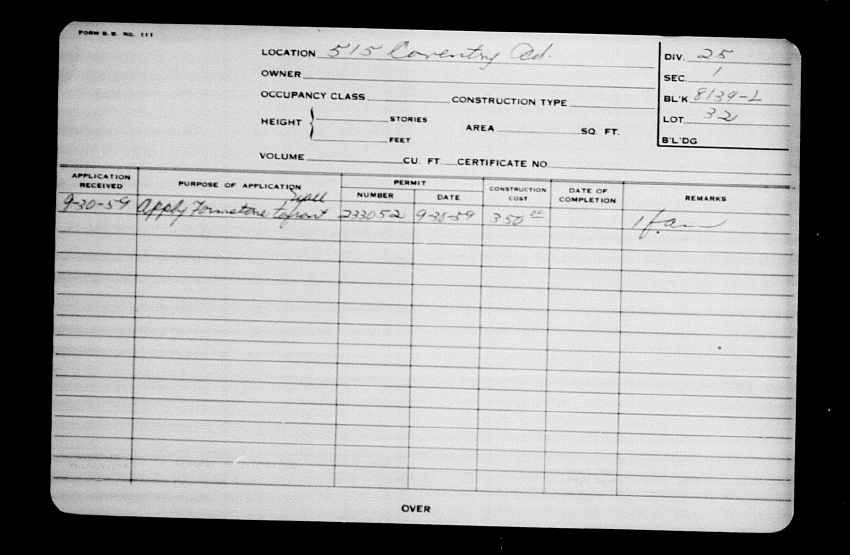 FORM B. B. No. 111
LOCATION 515 Coventry Rd.
OWNER
OCCUPANCY CLASS CONSTRUCTION TYPE
HEIGHT { STORIES
FEET
AREA SQ. FT.
VOLUME CU. FT. CERTIFICATE NO.
DIV. 25
SEC. 1
BL'K 8139-L
LOT 32
B'L'DG
APPLICATION RECEIVED PURPOSE OF APPLICATION PERMIT NUMBER DATE CONSTRUCTION COST DATE OF COMPLETION REMARKS
wall
9-30-59 Apply Formstone to front 233052 9-30-59 350 00 1 fam
OVER